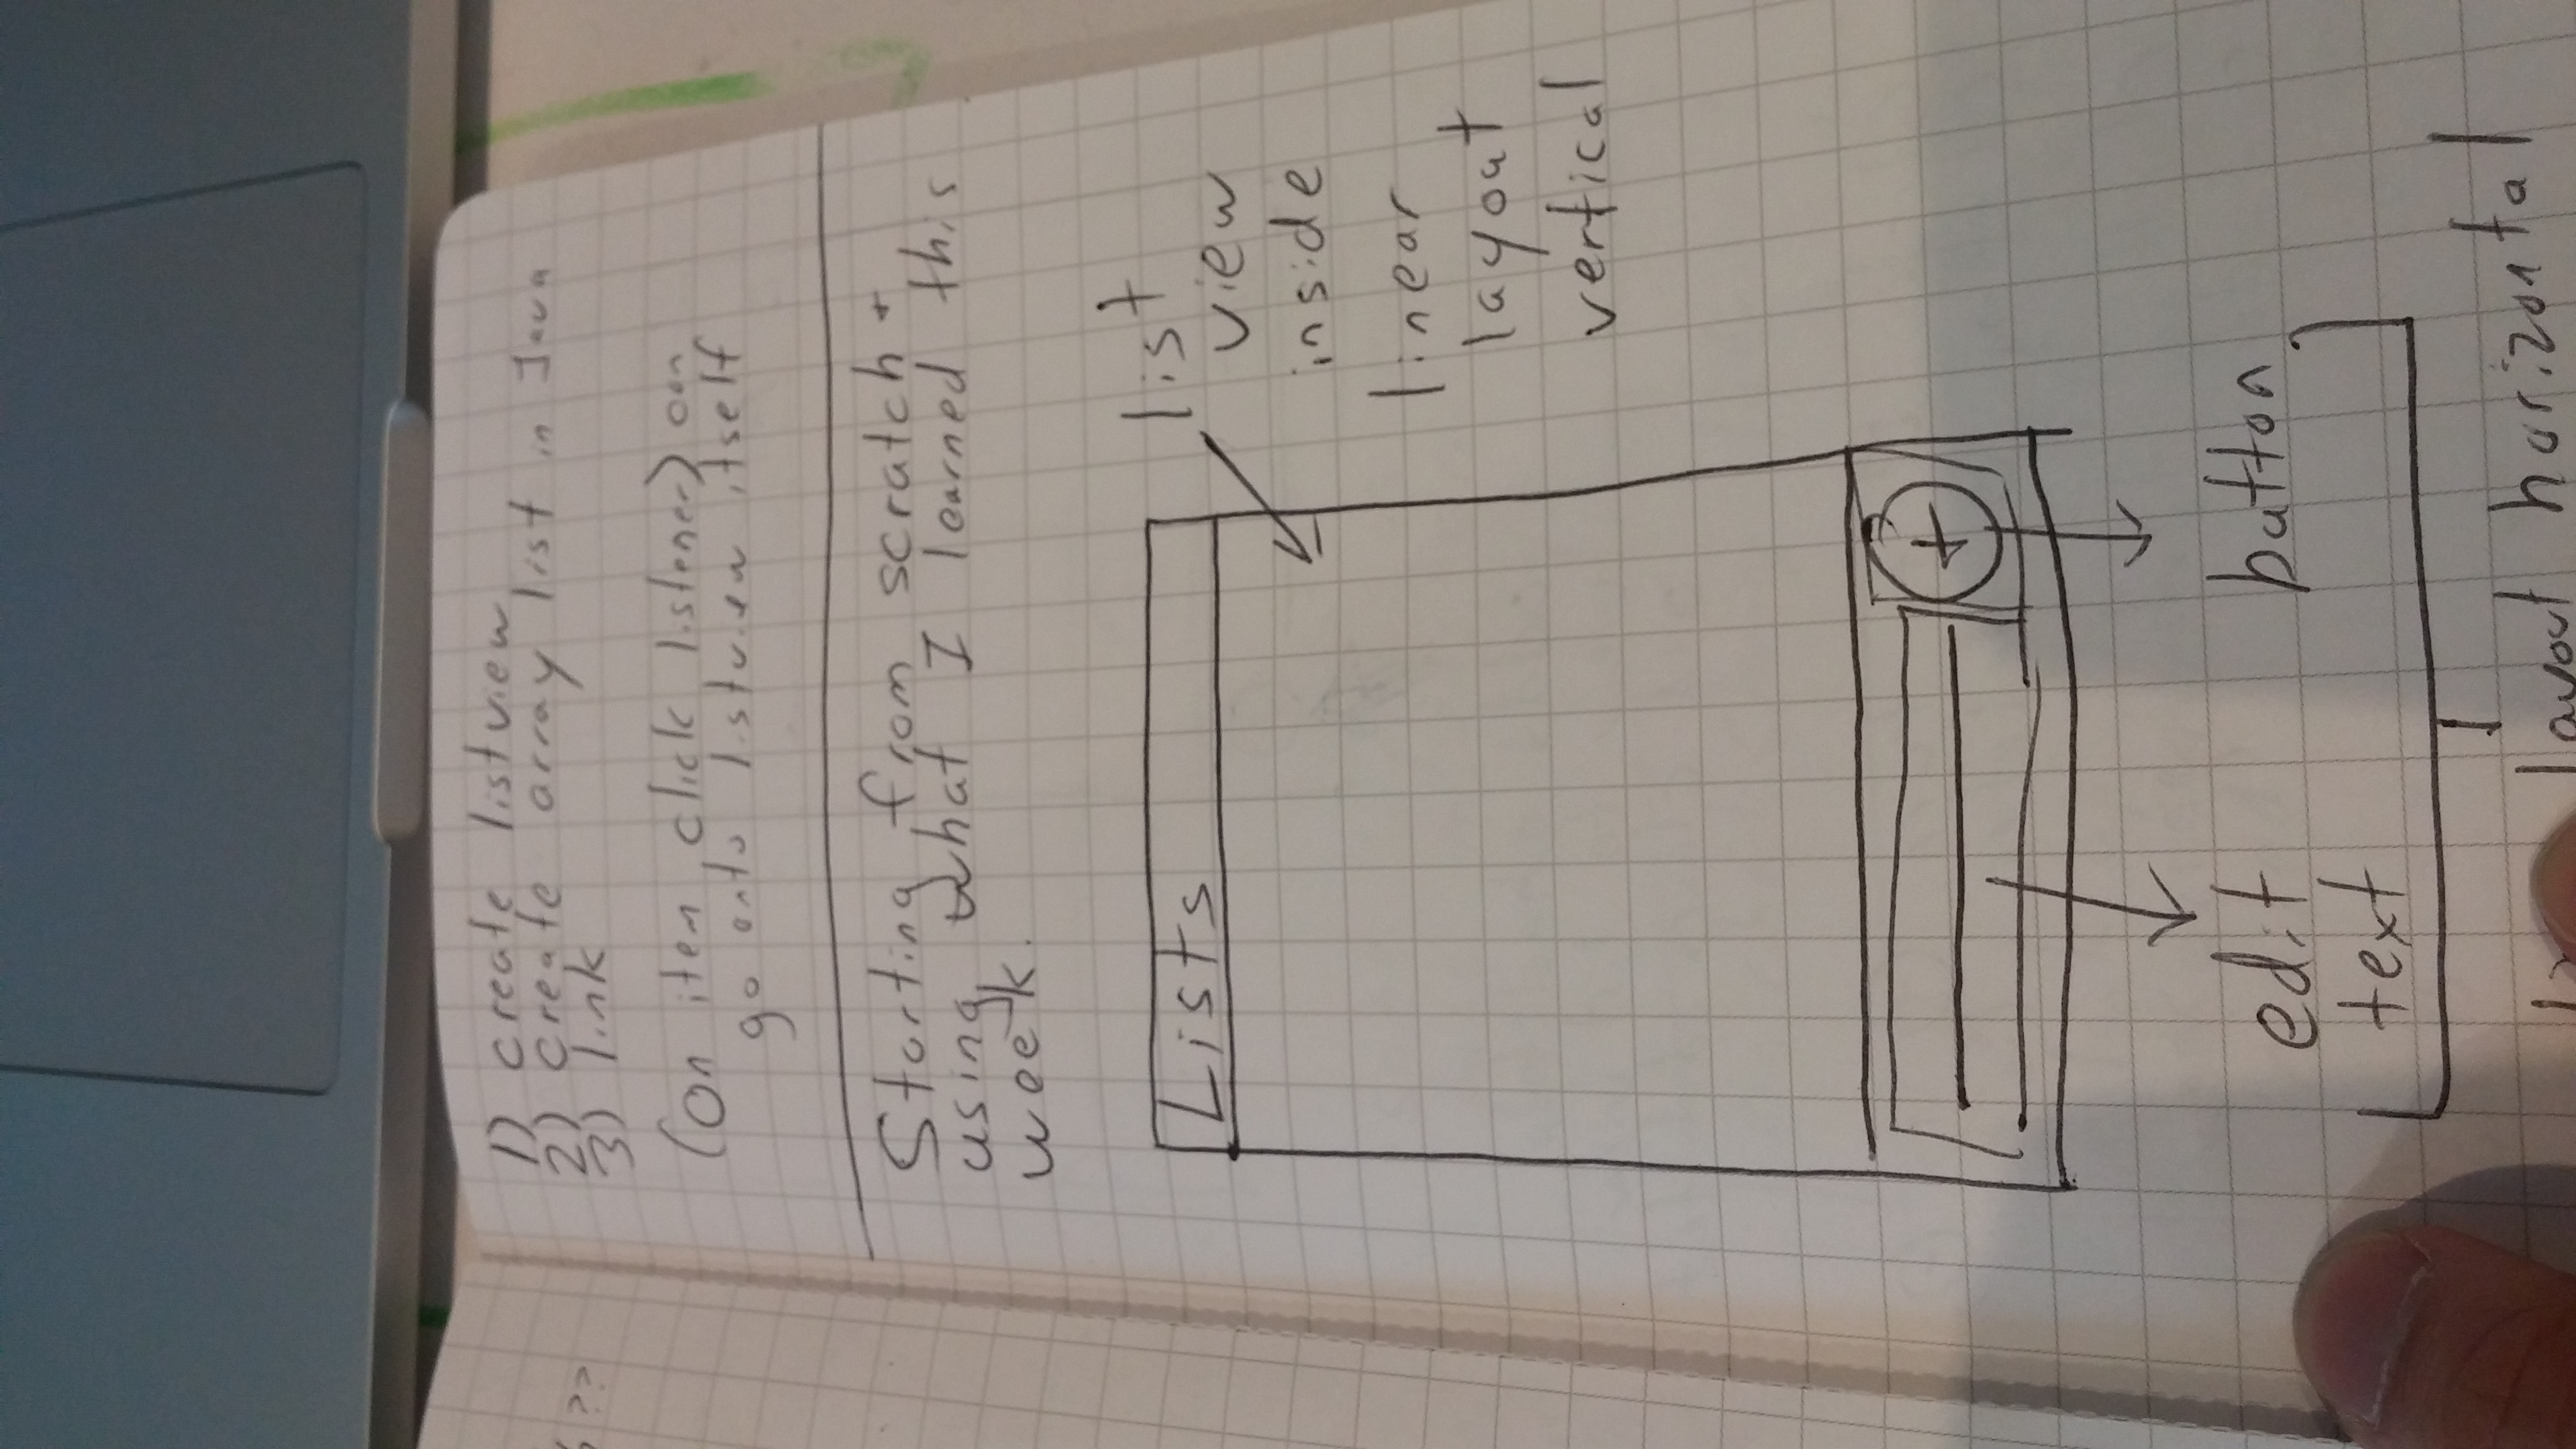 ??
1) create listview
2) create array list in Java
3) link
(On item click listener) can
go onto listview itself
Starting from scratch +
using what I learned this
week.
Lists
list
view
inside
linear
layout
vertical
+
edit
text
button
layout horizontal